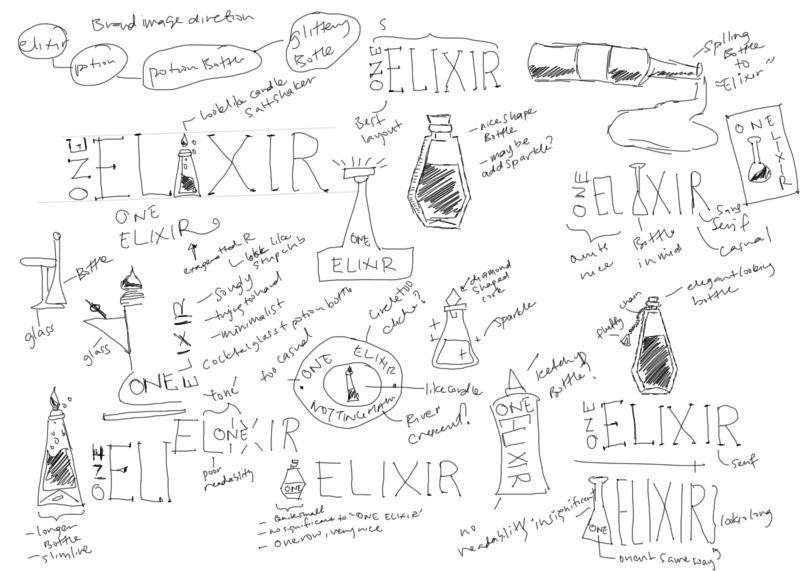 Brand image direction
elixir
potion
potion Bottle
glittery
Bottle
S
ONE ELIXIR
Best
layout
Spilling
Bottle
to
"Elixir"
look like candle
Saltshaker
ONE ELIXIR
nice shape
Bottle
- maybe
add sparkle?
ONE
ELIXIR
ONE ELIXIR
quite
nice
Bottle
in mid
Sans
Serif
Casual
ONE
ELIXIR
exagerated R
look like
stripclub
ONE
ELIXIR
Bottle
glass
glass
ONE
ELIXIR
- trying to hard
- minimalist
Cocktail glass + potion bottle
diamond
shaped
cork
sparkle
elegant looking
bottle
chain
fluffy
circle too
cliche?
too casual
ONE ELIXIR
NOTTINGHAM
like candle
River
crescent?
ketchup
Bottle?
ONE
ELIXIR
no
readability
ONE ELIXIR
Serif
- longer
Bottle
- slimline
ONE ELI
tone
ELONEIR
poor
readability
ONE
ELIXIR
- Quite small
- no significant to "ONE ELIXIR"
- One row, very nice
insignificant
ONE
ELIXIR
looks long
orient same way?